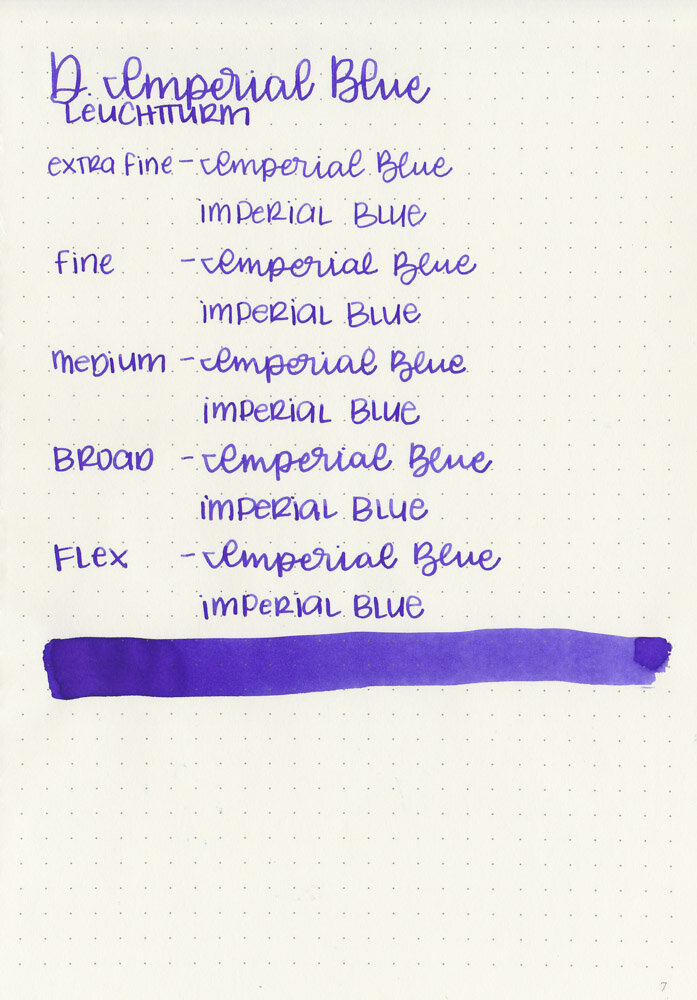 D. Imperial Blue
Leuchtturm
extra fine - Imperial Blue
imperial Blue
fine - Imperial Blue
imperial Blue
medium - Imperial Blue
imperial Blue
Broad - Imperial Blue
imperial Blue
Flex - Imperial Blue
imperial Blue
7